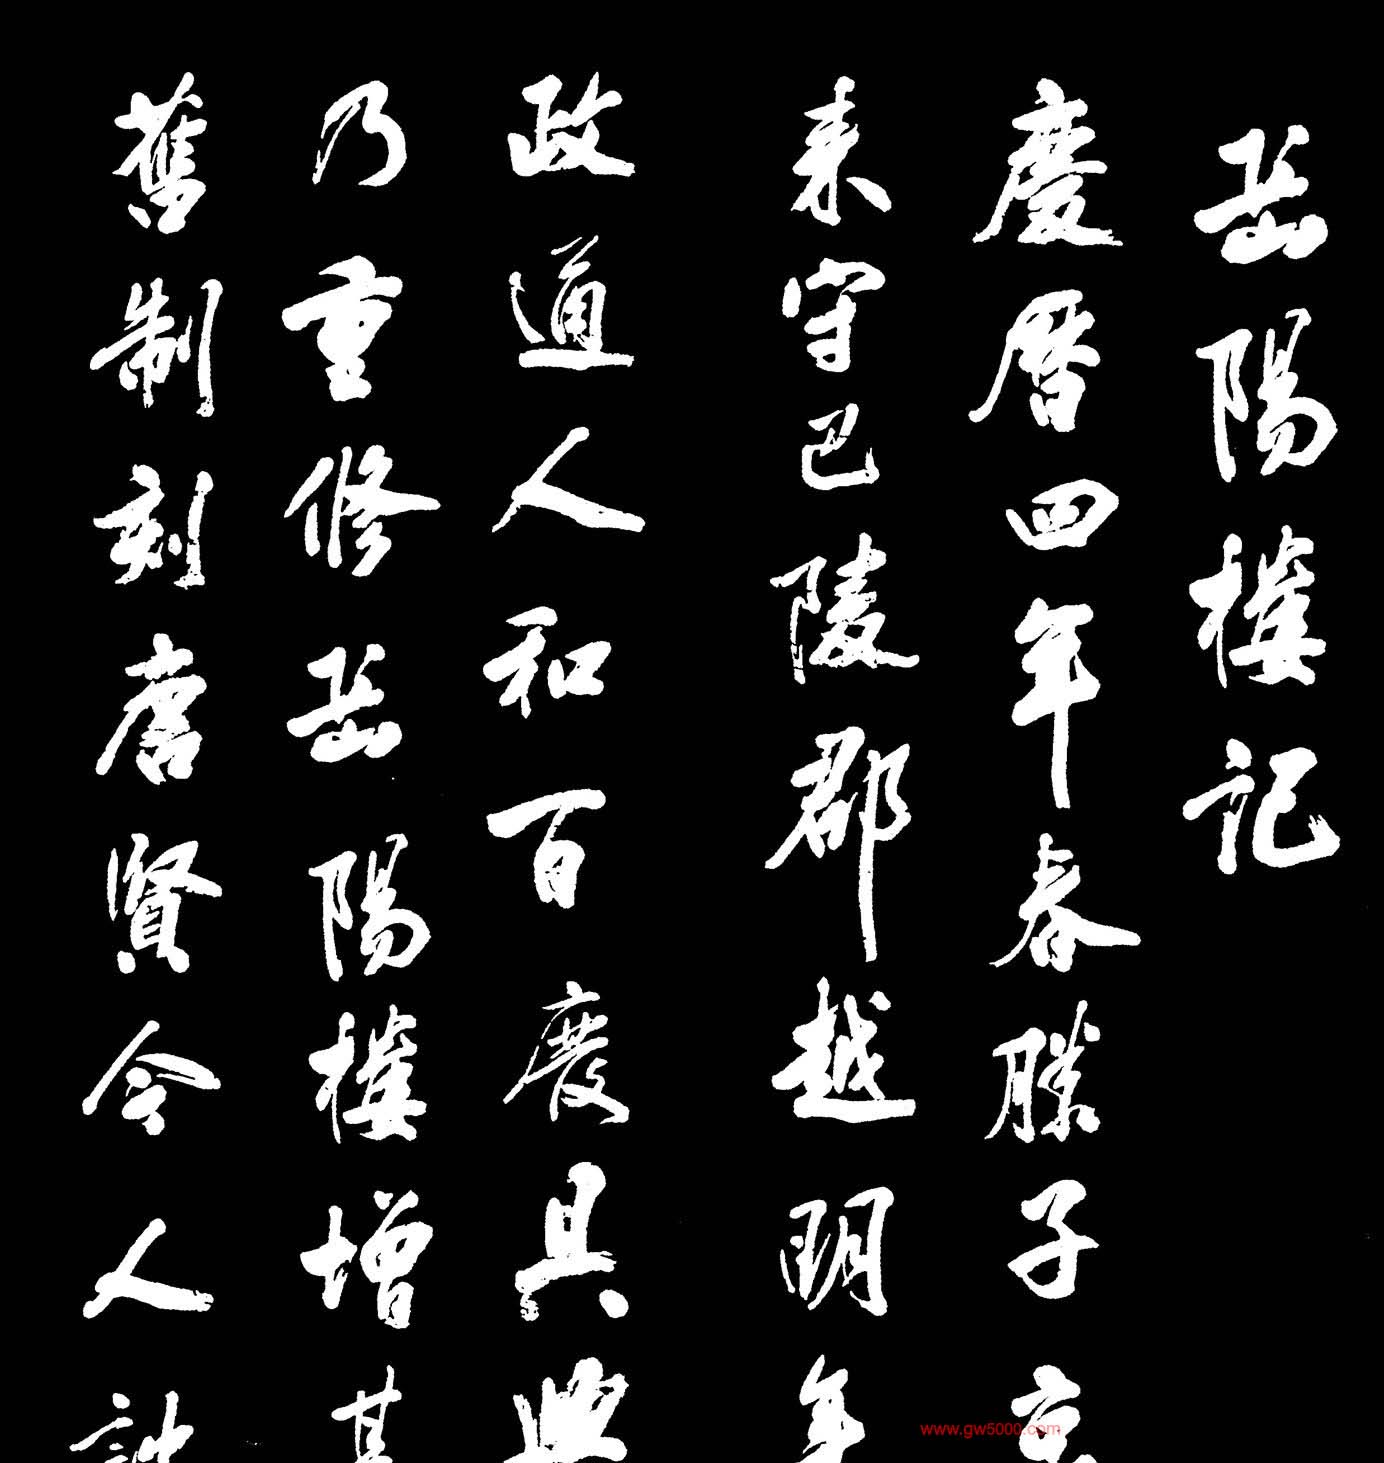 岳陽樓記
慶曆四年春滕子京
来守巴陵郡越明年
政道人和百廢具興
乃重修岳陽樓增其
舊制刻唐賢今人
www.gw5000.com